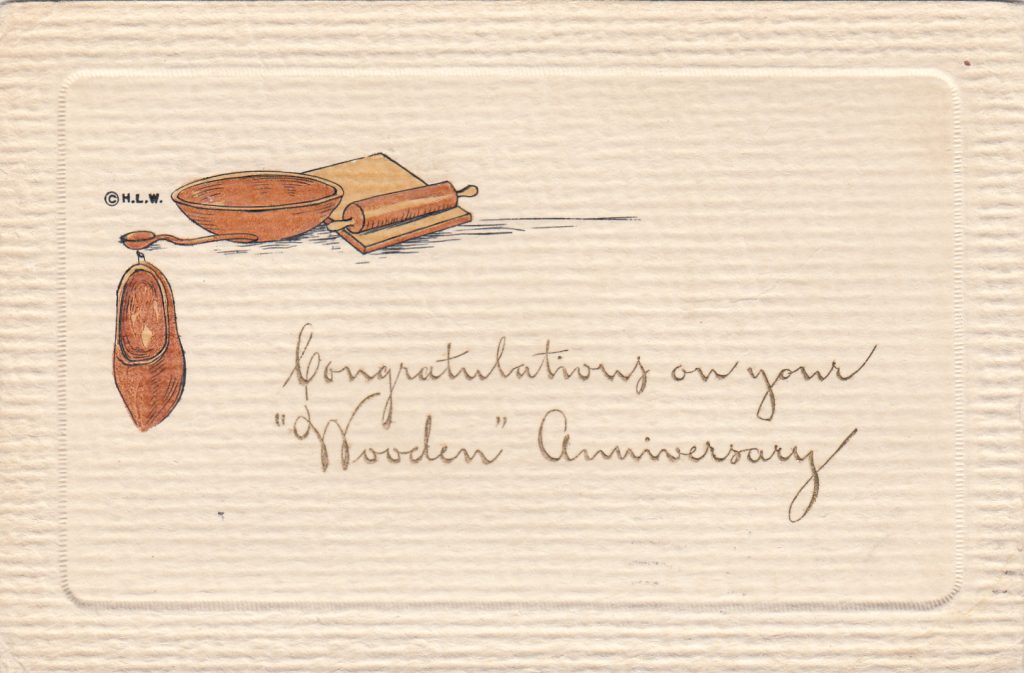 © H.L.W.
Congratulations on your
"Wooden" Anniversary